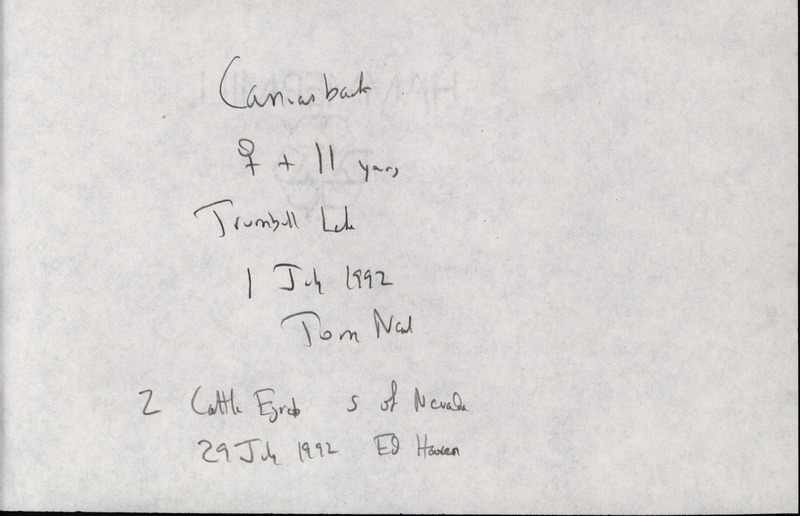 Canvasback
♀ + 11 yars
Trumbull Lake
1 July 1992
Tom Neal
2 Cattle Egrets S of Nevada
29 July 1992 Ed